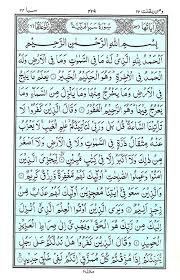 سُوْرَةُ سَبَاٍ
بِسْمِ اللهِ الرَّحْمٰنِ الرَّحِيْمِ
اَلْحَمْدُ لِلّٰهِ الَّذِيْ لَهٗ مَا فِي السَّمٰوٰتِ وَمَا فِي الْاَرْضِ وَلَهُ
الْحَمْدُ فِي الْاٰخِرَةِ وَهُوَ الْحَكِيْمُ الْخَبِيْرُ يَعْلَمُ مَا يَلِجُ فِي
الْاَرْضِ وَمَا يَخْرُجُ مِنْهَا وَمَا يَنْزِلُ مِنَ السَّمَآءِ وَمَا يَعْرُجُ
فِيْهَا وَهُوَ الرَّحِيْمُ الْغَفُوْرُ وَقَالَ الَّذِيْنَ كَفَرُوْا لَا تَاْتِيْنَا
السَّاعَةُ قُلْ بَلٰى وَرَبِّيْ لَتَاْتِيَنَّكُمْ عٰلِمِ الْغَيْبِ لَا يَعْزُبُ
عَنْهُ مِثْقَالُ ذَرَّةٍ فِي السَّمٰوٰتِ وَلَا فِي الْاَرْضِ وَلَا اَصْغَرُ مِنْ
ذٰلِكَ وَلَا اَكْبَرُ اِلَّا فِيْ كِتٰبٍ مُّبِيْنٍ لِّيَجْزِيَ الَّذِيْنَ اٰمَنُوْا وَ
عَمِلُوا الصّٰلِحٰتِ اُولٰٓئِكَ لَهُمْ مَّغْفِرَةٌ وَّرِزْقٌ كَرِيْمٌ
وَالَّذِيْنَ سَعَوْ فِيْٓ اٰيٰتِنَا مُعٰجِزِيْنَ اُولٰٓئِكَ لَهُمْ عَذَابٌ مِّنْ
رِّجْزٍ اَلِيْمٌ وَيَرَى الَّذِيْنَ اُوْتُوا الْعِلْمَ الَّذِيْٓ اُنْزِلَ
اِلَيْكَ مِنْ رَّبِّكَ هُوَ الْحَقَّ وَيَهْدِيْٓ اِلٰى صِرَاطِ الْعَزِيْزِ
الْحَمِيْدِ وَقَالَ الَّذِيْنَ كَفَرُوْا هَلْ نَدُلُّكُمْ عَلٰى رَجُلٍ